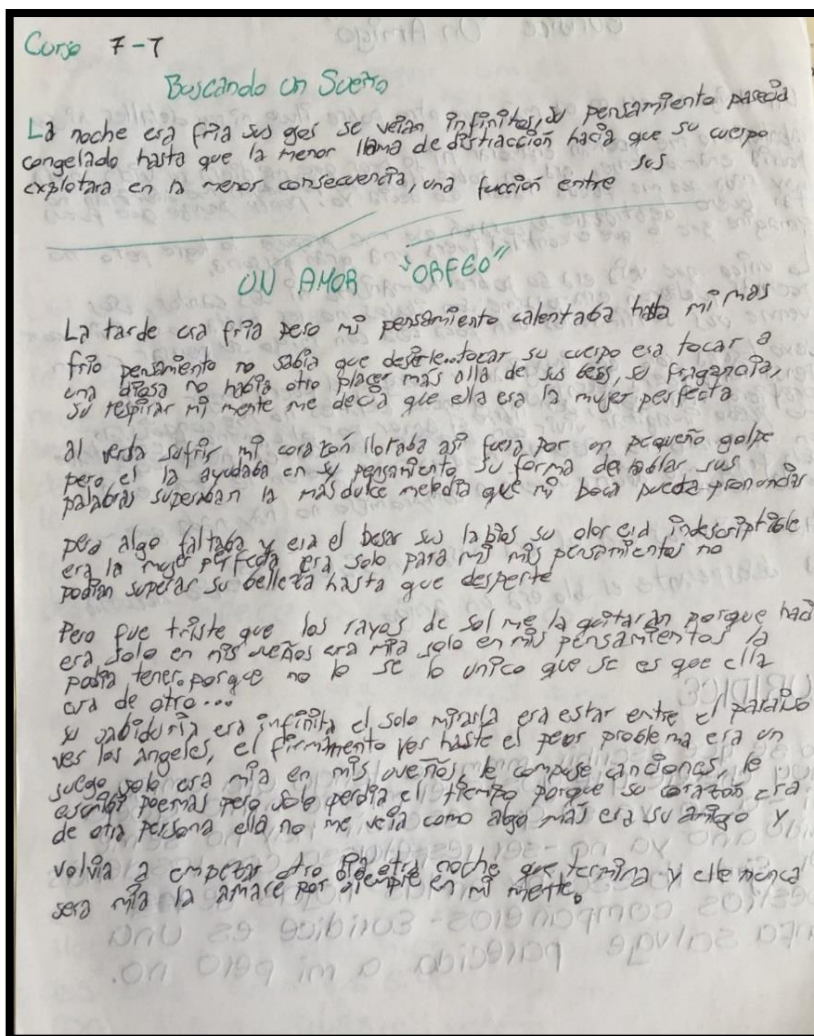 Curso 7-7
Buscando un Sueño
La noche era fria sus ojos se veian infinitos, su pensamiento parecia
congelado hasta que la menor llama de distracción hacia que su cuerpo
explotara en la menor consecuencia, una fucción entre sus
UN AMOR "ORFEO"
La tarde era fria pero mi pensamiento calentaba hasta mi mas
frio pensamiento no sabia que tocar su cuerpo era tocar a
una diosa no habia otro placer más alla de sus besos, su fragancia,
su respirar mi mente me decia que ella era la mujer perfecta
al verla sufrir mi corazón lloraba asi fuera por un pequeño golpe
pero el la ayudaba en su pensamiento su forma de hablar sus
palabras superaban la más dulce melodia que mi boca pueda pronunciar
pero algo faltaba y era el besar sus labios su olor era indescriptible
era la mujer perfecta era solo para mi mis pensamientos no
podian superar su belleza hasta que desperte
Pero fue triste que los rayos de sol me la quitaran porque
era solo en mis sueños era mia solo en mis pensamientos la
podia tener. porque no lo se lo unico que se es que ella
era de otro...
su sabiduria era infinita el solo mirarla era estar entre el paraiso
ver los angeles, el firmamento ver haste el peor problema era un
juego solo era mia en mis sueños, le compuse canciones, le
escribi poemas pero solo perdia el tiempo porque su corazón era
de otra persona ella no me veia como algo más era su amigo y
volvia a empezar otro dia otra noche que termina y elle nunca
sera mia la amare por siempre en mi mente.